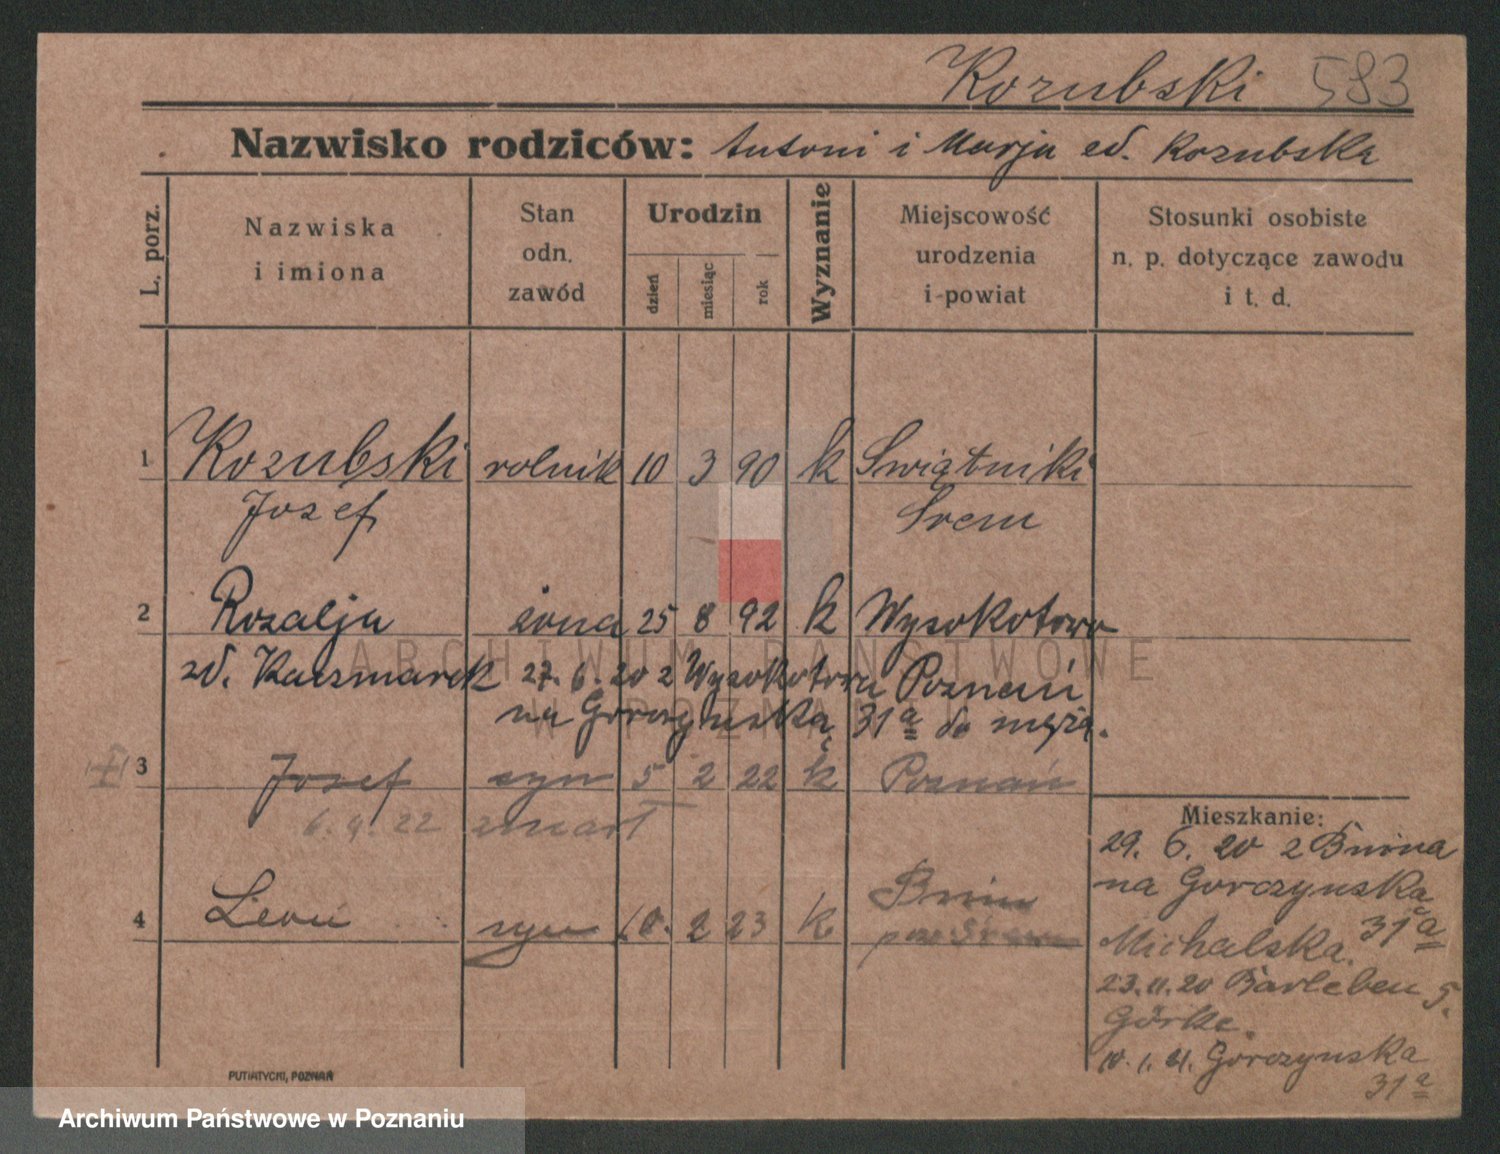 Kozubski 583
Nazwisko rodziców: Antoni i Marja Kozubska
L. porz.
Nazwiska
i imiona
Stan
odn.
zawód
Urodzin
dzień
miesiąc
rok
Wyznanie
Miejscowość
urodzenia
i powiat
Stosunki osobiste
n. p. dotyczące zawodu
i t. d.
1 Kozubski rolnik 10 3 90 k Swiątniki
Jozef Srem
2 Rozalja żona 25 8 92 k Wysokotowo
zd. Kaczmarek 27. 6. 20 z Wysokotowa Poznań
na Gorczyńska 31a do męża.
3 Jozef syn 5 2 22 k Poznań
6. 4. 22 zmarł
4 Leon syn 10. 2 23 k Bnin
Mieszkanie:
29. 6. 20 z Bnina
na Gorczynska
31a
Michalska.
23. 11. 20 Barleben 5.
Görke.
10. 1. 21. Gorczynska
31a
PUTIATYCKI, POZNAŃ
ARCHIWUM PAŃSTWOWE
W POZNANIU
Archiwum Państwowe w Poznaniu